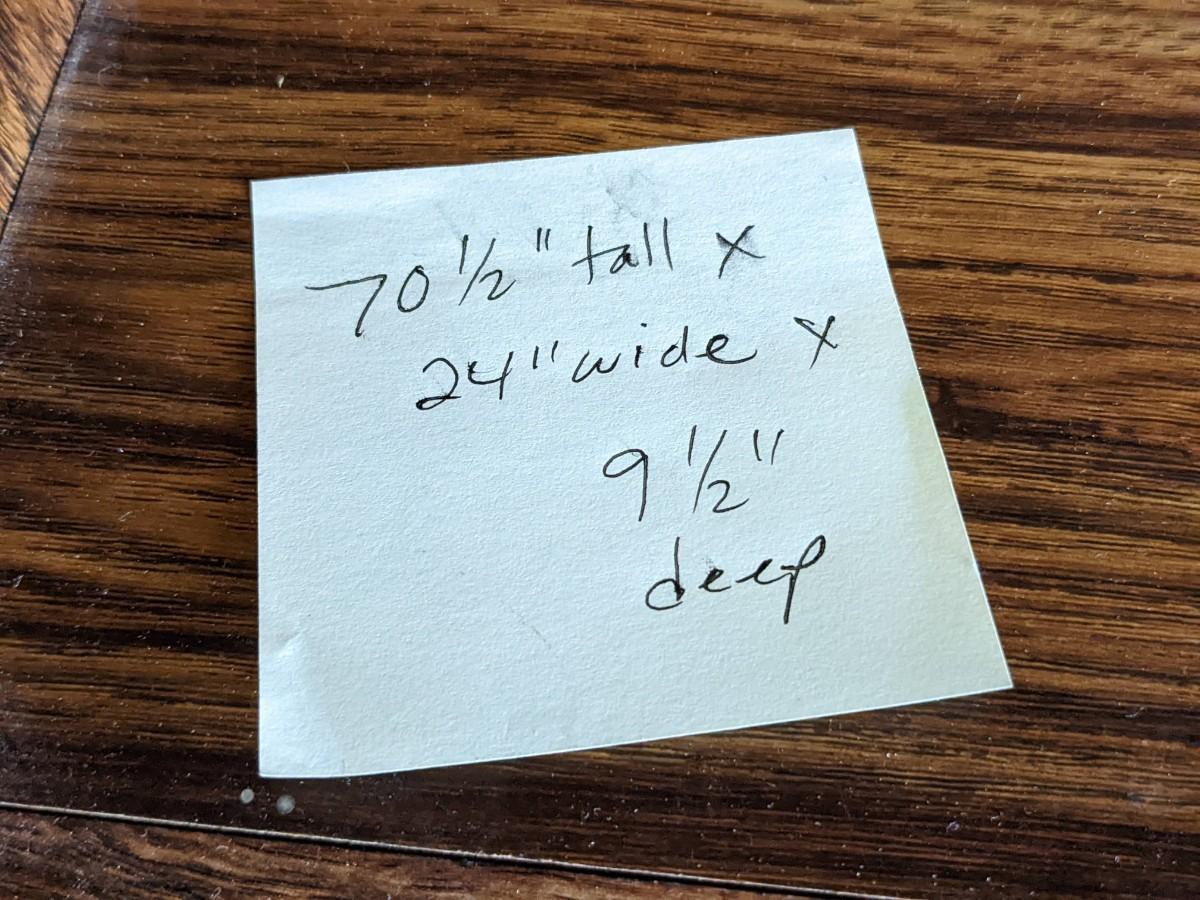 70 1/2" tall x
24" wide x
9 1/2"
deep